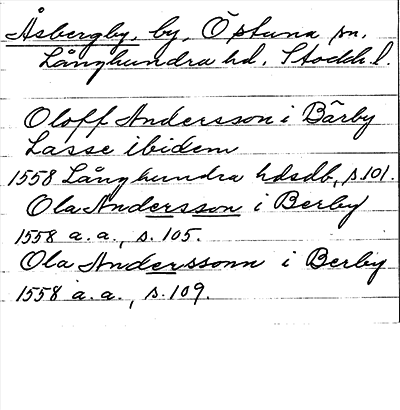 Åsbergby, by, Östuna sn.
Långhundra hd. Stockh. l.
Oloff Andersson i Bårby
Lasse ibidem
1558 Långhundra hdsdb, s. 101.
Ola Andersson i Berby
1558 a.a., s. 105.
Ola Anderssonn i Berby
1558 a.a., s. 109.